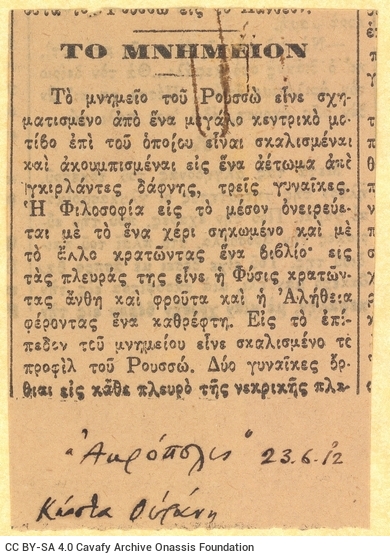 ΤΟ ΜΝΗΜΕΙΟΝ
Τὸ μνημεῖο τοῦ Ρουσσὼ εἶνε σχη-
ματισμένο ἀπὸ ἕνα μεγάλο κεντρικὸ μο-
τίβο ἐπὶ τοῦ ὁποίου εἶναι σκαλισμέναι
καὶ ἀκουμπισμέναι εἰς ἕνα ἀέτωμα ἀπὸ
γκιρλάντες δάφνης, τρεῖς γυναῖκες.
Ἡ Φιλοσοφία εἰς τὸ μέσον ὀνειρεύε-
ται μὲ τὸ ἕνα χέρι σηκωμένο καὶ μὲ
τὸ ἄλλο κρατῶντας ἕνα βιβλίο· εἰς
τὰς πλευράς της εἶνε ἡ Φύσις κρατῶν-
τας ἄνθη καὶ φροῦτα καὶ ἡ Ἀλήθεια
φέροντας ἕνα καθρέφτη. Εἰς τὸ ἐπί-
πεδον τοῦ μνημείου εἶνε σκαλισμένο τὸ
προφὶλ τοῦ Ρουσσώ. Δύο γυναῖκες ὄρ-
θιαι εἰς κάθε πλευρὸ τῆς νεκρικῆς πλα-
"Ἀκρόπολις" 23.6.12
Κώστα Οὐράνη
CC BY-SA 4.0 Cavafy Archive Onassis Foundation